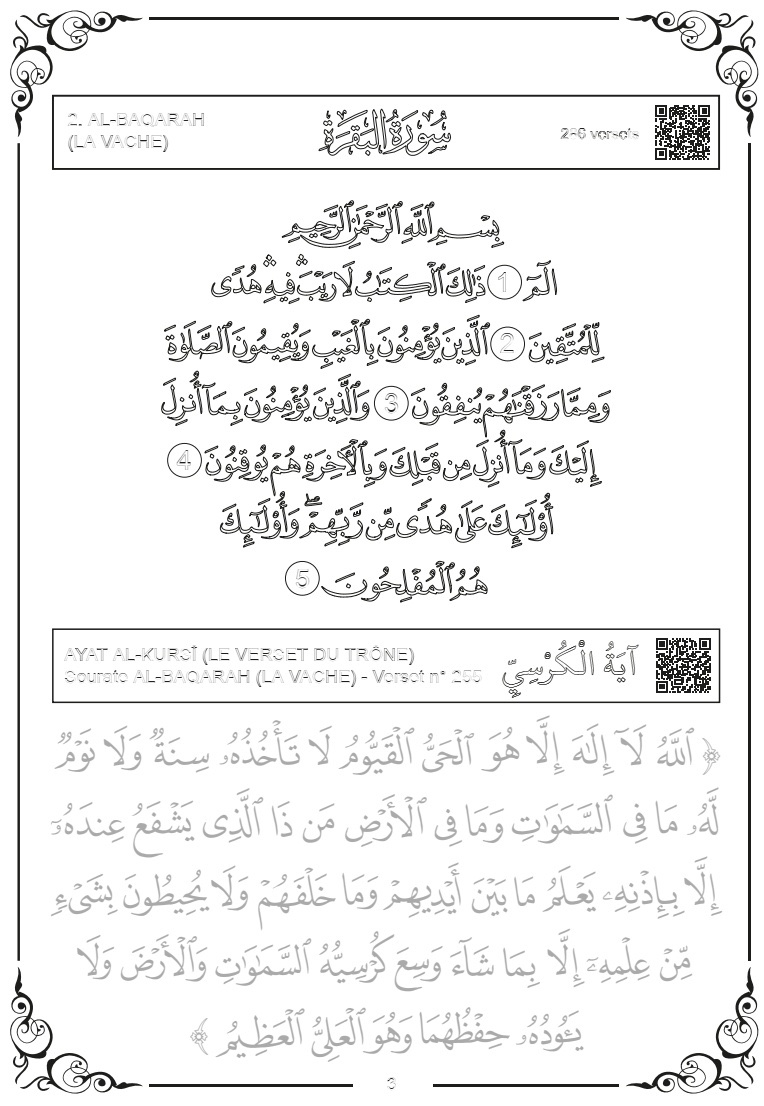 2. AL-BAQARAH
(LA VACHE)
سُورَةُ الْبَقَرَةِ
286 versets
بِسْمِ ٱللَّهِ ٱلرَّحْمَٰنِ ٱلرَّحِيمِ
الٓمٓ 1 ذَٰلِكَ ٱلْكِتَٰبُ لَا رَيْبَ ۛ فِيهِ ۛ هُدًى
لِّلْمُتَّقِينَ 2 ٱلَّذِينَ يُؤْمِنُونَ بِٱلْغَيْبِ وَيُقِيمُونَ ٱلصَّلَوٰةَ
وَمِمَّا رَزَقْنَٰهُمْ يُنفِقُونَ 3 وَٱلَّذِينَ يُؤْمِنُونَ بِمَآ أُنزِلَ
إِلَيْكَ وَمَآ أُنزِلَ مِن قَبْلِكَ وَبِٱلْأَخِرَةِ هُمْ يُوقِنُونَ 4
أُو۟لَٰٓئِكَ عَلَىٰ هُدًى مِّن رَّبِّهِمْ ۖ وَأُو۟لَٰٓئِكَ
هُمُ ٱلْمُفْلِحُونَ 5
AYAT AL-KURSÎ (LE VERSET DU TRÔNE)
Sourate AL-BAQARAH (LA VACHE) - Verset n° 255
آيَةُ الْكُرْسِيِّ
﴿ ٱللَّهُ لَآ إِلَٰهَ إِلَّا هُوَ ٱلْحَىُّ ٱلْقَيُّومُ لَا تَأْخُذُهُۥ سِنَةٌ وَلَا نَوْمٌ
لَّهُۥ مَا فِى ٱلسَّمَٰوَٰتِ وَمَا فِى ٱلْأَرْضِ مَن ذَا ٱلَّذِى يَشْفَعُ عِندَهُۥٓ
إِلَّا بِإِذْنِهِۦ يَعْلَمُ مَا بَيْنَ أَيْدِيهِمْ وَمَا خَلْفَهُمْ وَلَا يُحِيطُونَ بِشَىْءٍ
مِّنْ عِلْمِهِۦٓ إِلَّا بِمَا شَآءَ وَسِعَ كُرْسِيُّهُ ٱلسَّمَٰوَٰتِ وَٱلْأَرْضَ وَلَا
يَـُٔودُهُۥ حِفْظُهُمَا وَهُوَ ٱلْعَلِىُّ ٱلْعَظِيمُ ﴾
3